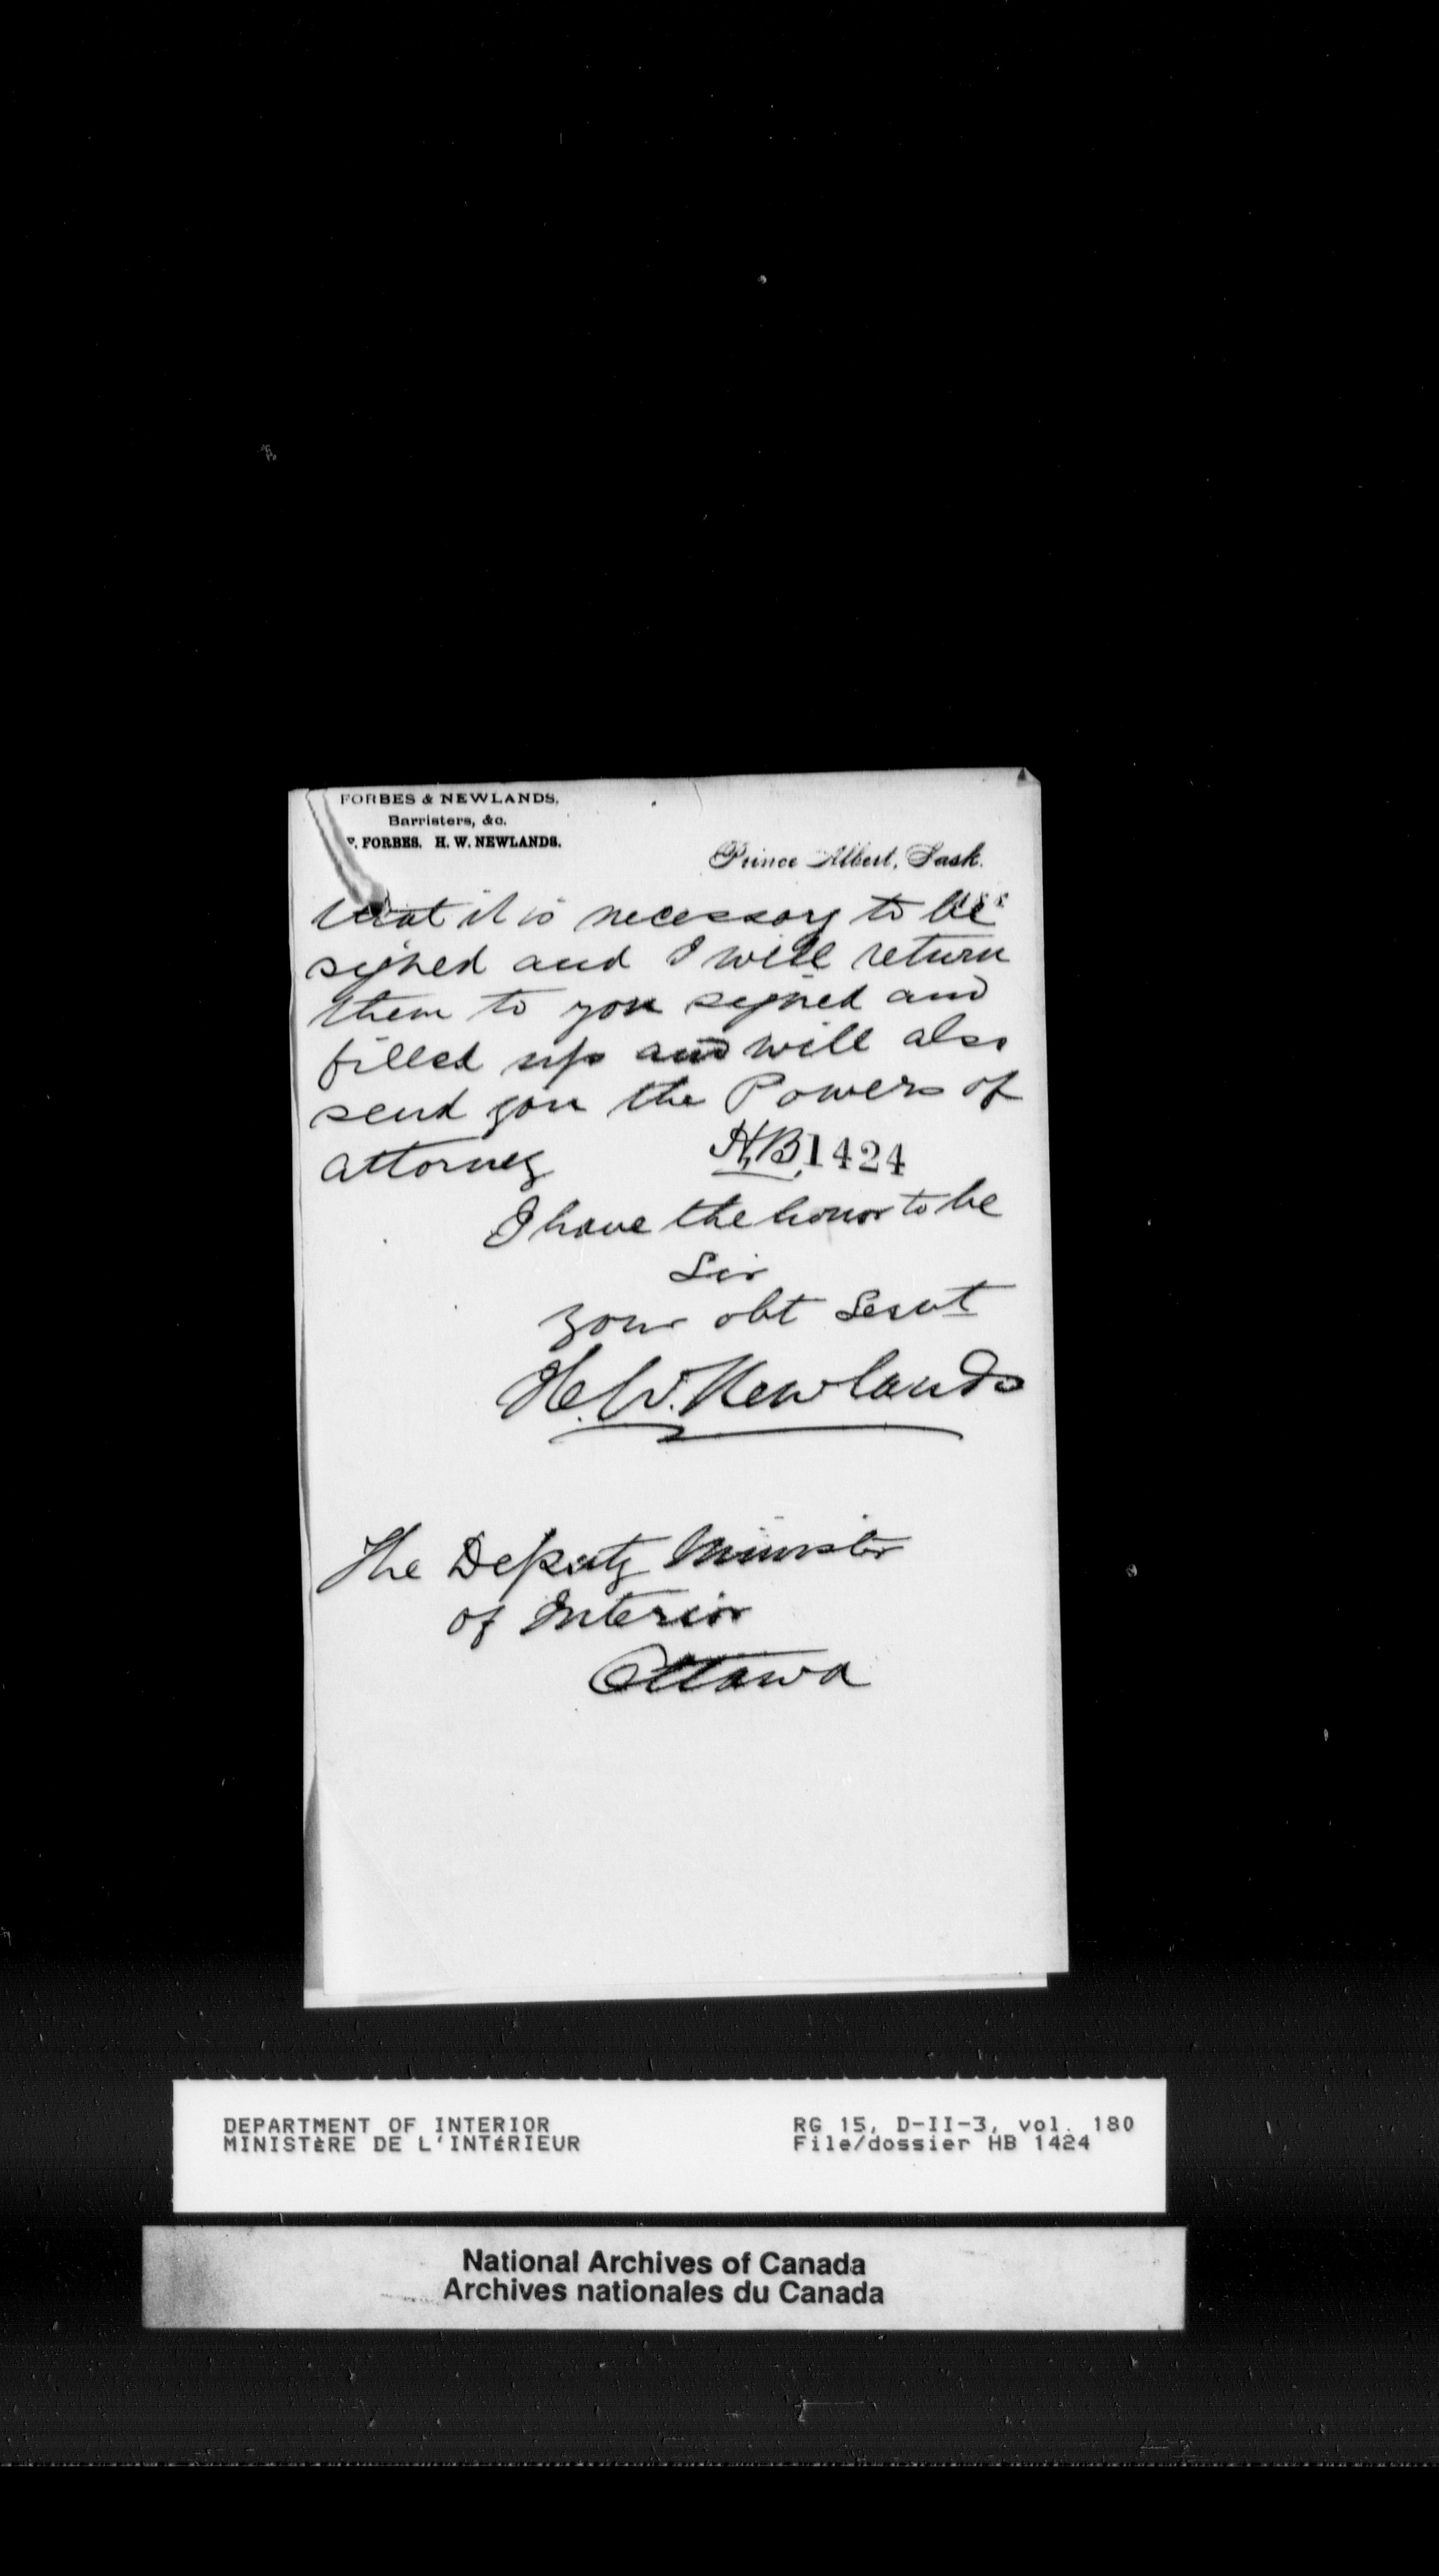 FORBES & NEWLANDS,
Barristers, &c.
FORBES. H. W. NEWLANDS.
Prince Albert, Sask.
that it is necessary to be
signed and I will return
them to you signed and
filled up and will also
send you the Powers of
attorney
H.B. 1424
I have the honor to be
Sir
your obt Servt
H. W. Newlands
The Deputy Minister
of Interior
Ottawa
DEPARTMENT OF INTERIOR
MINISTÈRE DE L'INTÉRIEUR
RG 15, D-II-3, vol. 180
File/dossier HB 1424
National Archives of Canada
Archives nationales du Canada